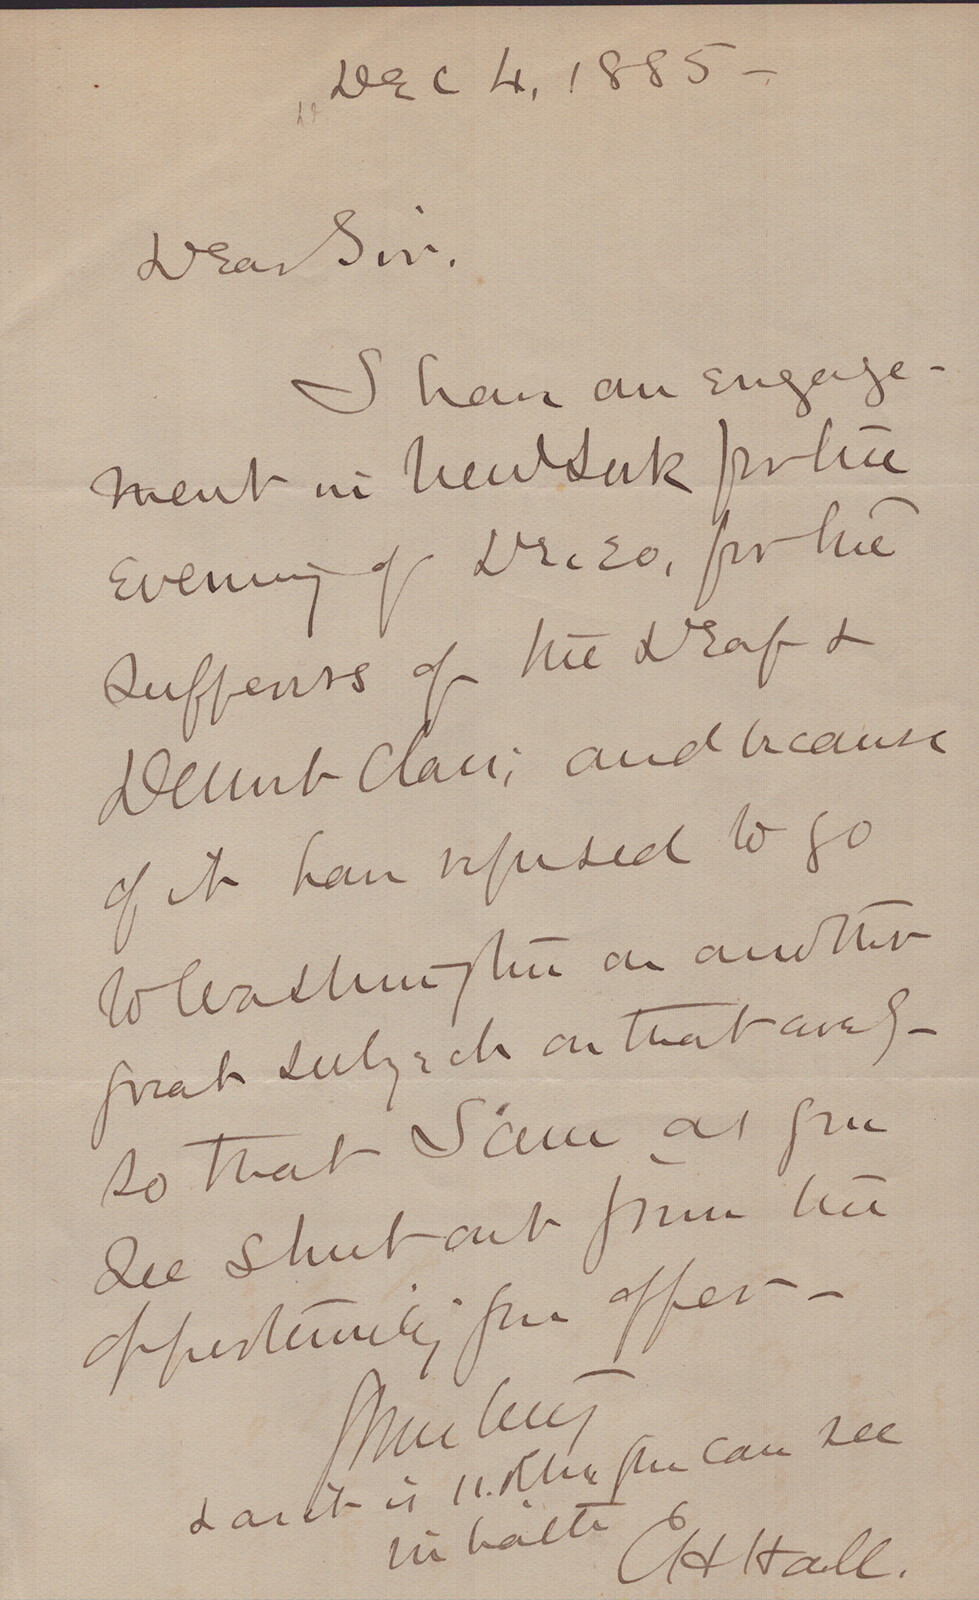 Dec 4, 1885 -
Dear Sir.
I have an engage-
ment in New York for the
Evening of Dec 20, for the
of the Deaf &
and because
of it have refused to go
to Washington on another
great subject on that eve'g -
so that I am as you
see shut out from the
opportunity you offer -
Yours truly
& as it is you can see
in haste
E H Hall.